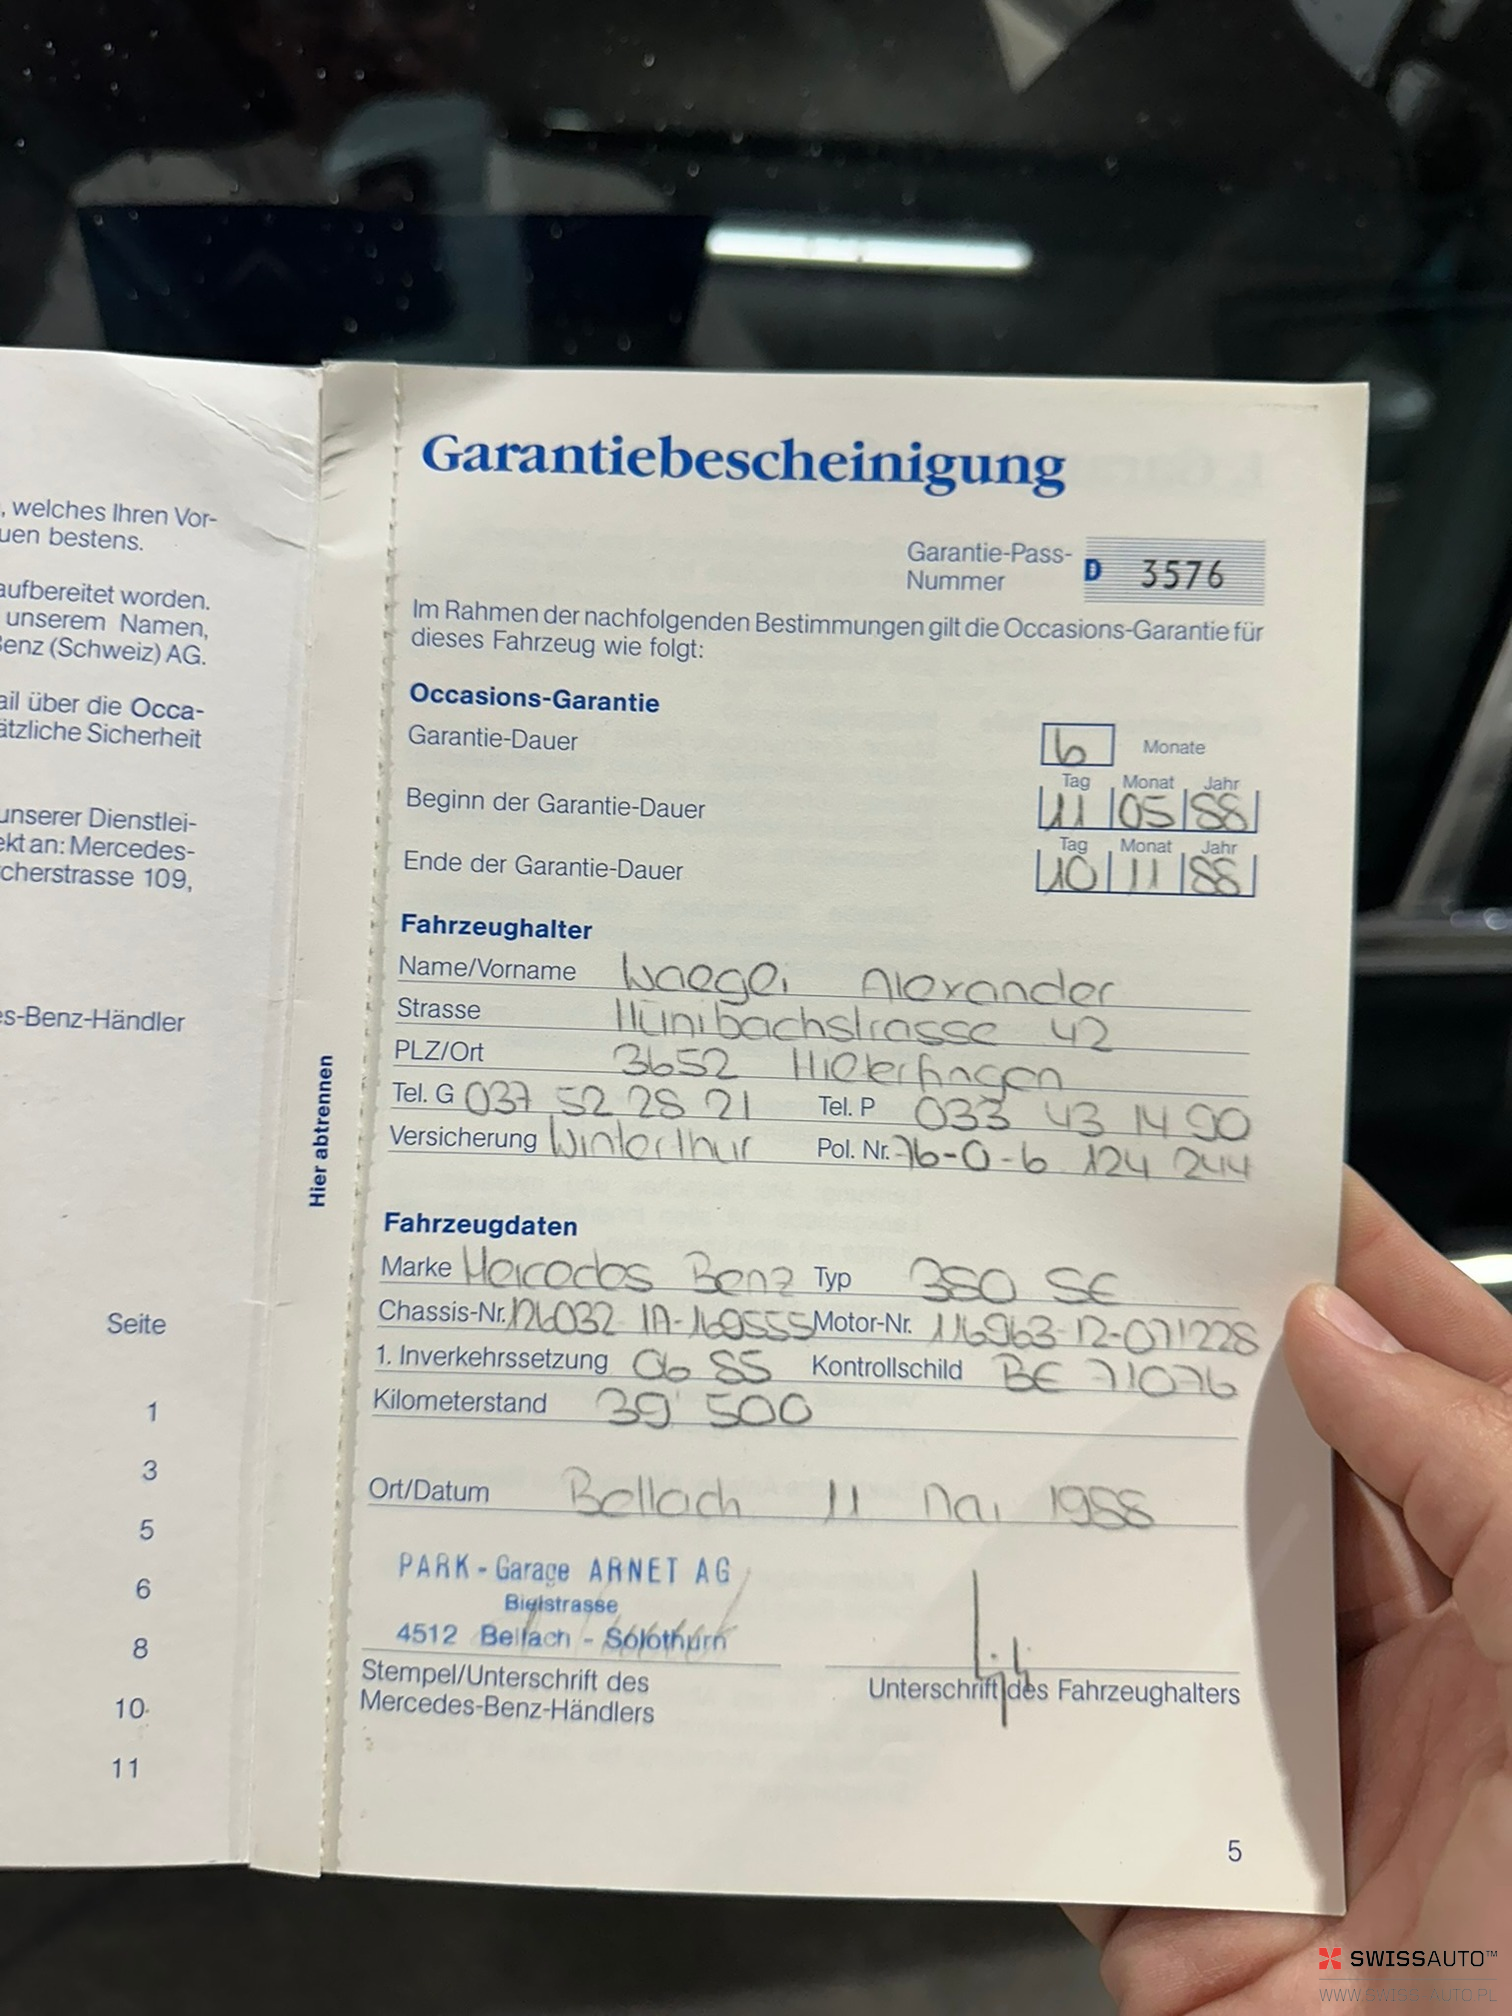 , welches Ihren Vor-
uen bestens.
aufbereitet worden.
unserem Namen,
Benz (Schweiz) AG.
ail über die Occa-
ätzliche Sicherheit
unserer Dienstlei-
ekt an: Mercedes-
cherstrasse 109,
es-Benz-Händler
Seite
1
3
5
6
8
10
11
Hier abtrennen
Garantiebescheinigung
Garantie-Pass-
Nummer D 3576
Im Rahmen der nachfolgenden Bestimmungen gilt die Occasions-Garantie für
dieses Fahrzeug wie folgt:
Occasions-Garantie
Garantie-Dauer 6 Monate
Tag Monat Jahr
Beginn der Garantie-Dauer 11 05 88
Tag Monat Jahr
Ende der Garantie-Dauer 10 11 88
Fahrzeughalter
Name/Vorname Alexander
Strasse Hünibachstrasse 42
PLZ/Ort 3652 Hilterfingen
Tel. G 037 52 28 21 Tel. P 033 43 14 90
Versicherung Winterthur Pol. Nr. 76-0-6 124 244
Fahrzeugdaten
Marke Mercedes Benz Typ 380 SE
Chassis-Nr. 126032 1A-169555 Motor-Nr. 116963-12-071228
1. Inverkehrssetzung 06 85 Kontrollschild BE 71076
Kilometerstand 39'500
Ort/Datum Bellach 11 Mai 1988
PARK - Garage ARNET AG
Bielstrasse
4512 Bellach - Solothurn
Stempel/Unterschrift des
Mercedes-Benz-Händlers
Unterschrift des Fahrzeughalters
5
SWISSAUTO™
WWW.SWISS-AUTO.PL